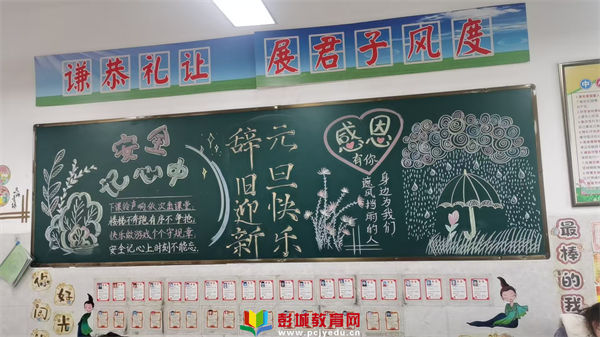 谦恭礼让 展君子风度
安全
记心中
下课铃声响,依次出课堂。
楼梯不奔跑,有序不争抢。
快乐做游戏,个个守规章。
安全记心上,时刻不能忘。
元旦快乐
辞旧迎新
感恩
有你
身边为我们
遮风挡雨的人
最棒的我
你好
彭城教育网
www.pcjyedu.cn